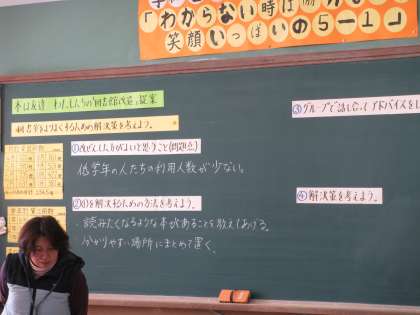 「わからない時は
笑顔いっぱいの5-1」
本は友達 わたしたちの「図書館改造」提案
図書室をよりよくするための解決策を考えよう。
①改ぜんした方がよいと思うこと(問題点)
低学年の人たちの利用人数が少ない。
②①を解決するための方法を考えよう。
・読みたくなるような本があることを教えてあげる。
・分かりやすい場所にまとめて置く。
③グループで話し合って アドバイスをし
④解決策を考えよう。